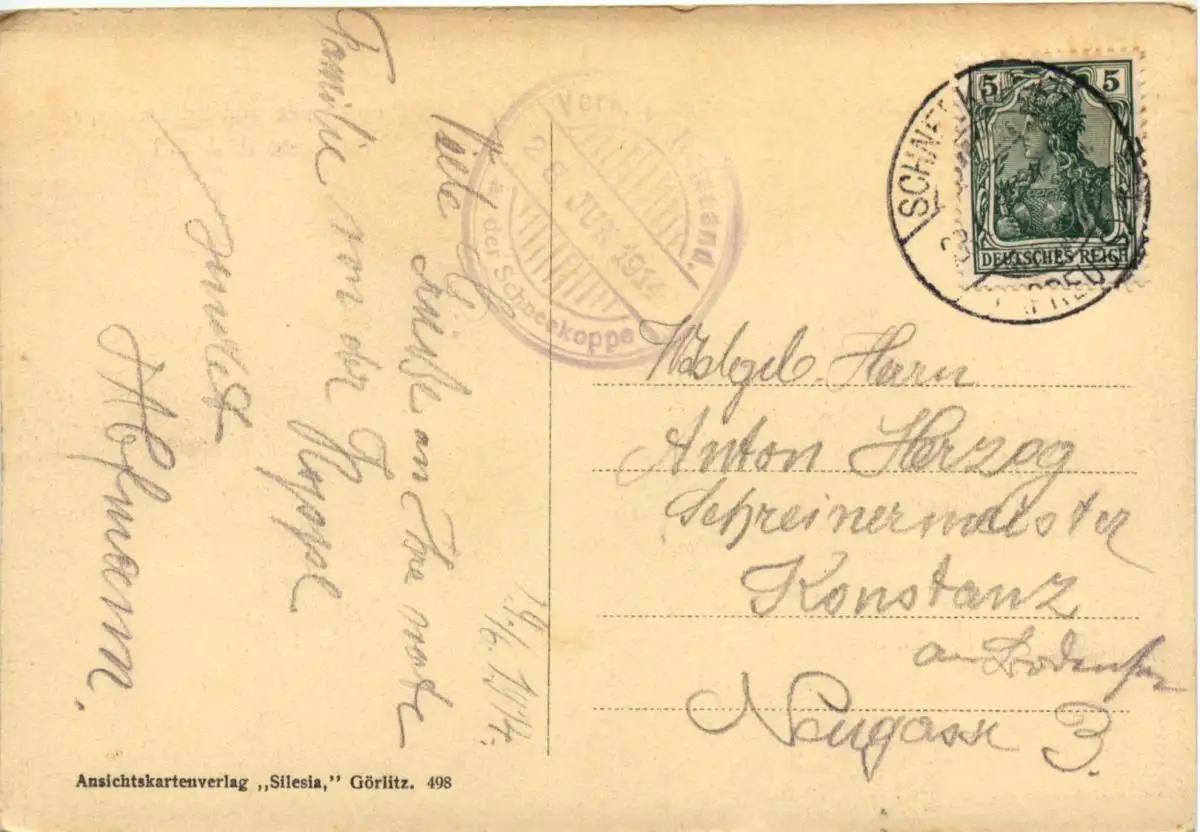 29./6. 1914.
Viele Grüße an Ihre werte
Familie von der Koppe
sendet
Hofmann.
28 JUN. 1914
a. der Schneekoppe
5 5
DEUTSCHES REICH
Herrn
Anton Herzog
Schreinermeister
Konstanz
am Bodensee
Neugasse 3.
Ansichtskartenverlag „Silesia,” Görlitz. 498